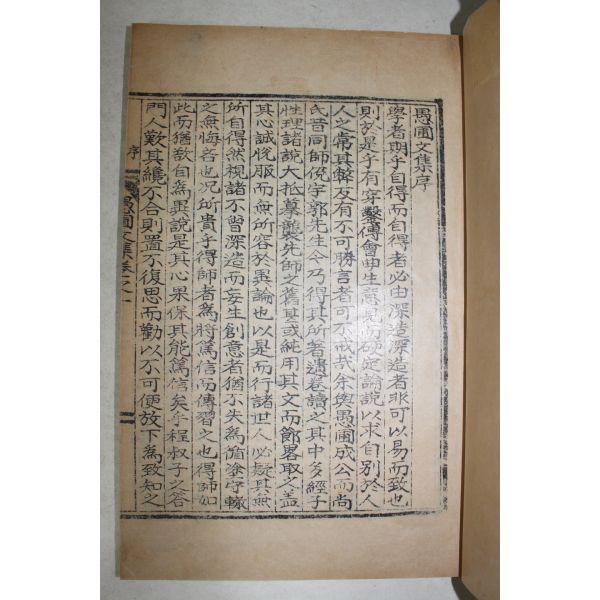 愚圃文集序
學者期乎自得而自得者必由深造深造者非可以易而致也
則於是乎有穿鑿傅會由生意見而硬定論說以求自別於人
人之常其弊反有不可勝言者可不戒哉余與愚圃成公而尚
氏昔同師俛宇郭先生今乃得其所著遺卷讀之其中多經子
性理諸說大抵摹襲先師之舊甚或純用其文而節畧取之盖
其心誠悅服而無所容於異論也以是而行諸世人必疑其無
所自得然視諸不曾深造而妄生創意者猶不失為循塗守轍
之無悔咎也况所貴乎得師者為將篤信而傳習之也得師如
此而猶敢自為異說是其心果保其能篤信矣乎程叔子之答
門人歎其纔不合則置不復思而勸以不可便放下為致知之
序
愚圃文集卷之一